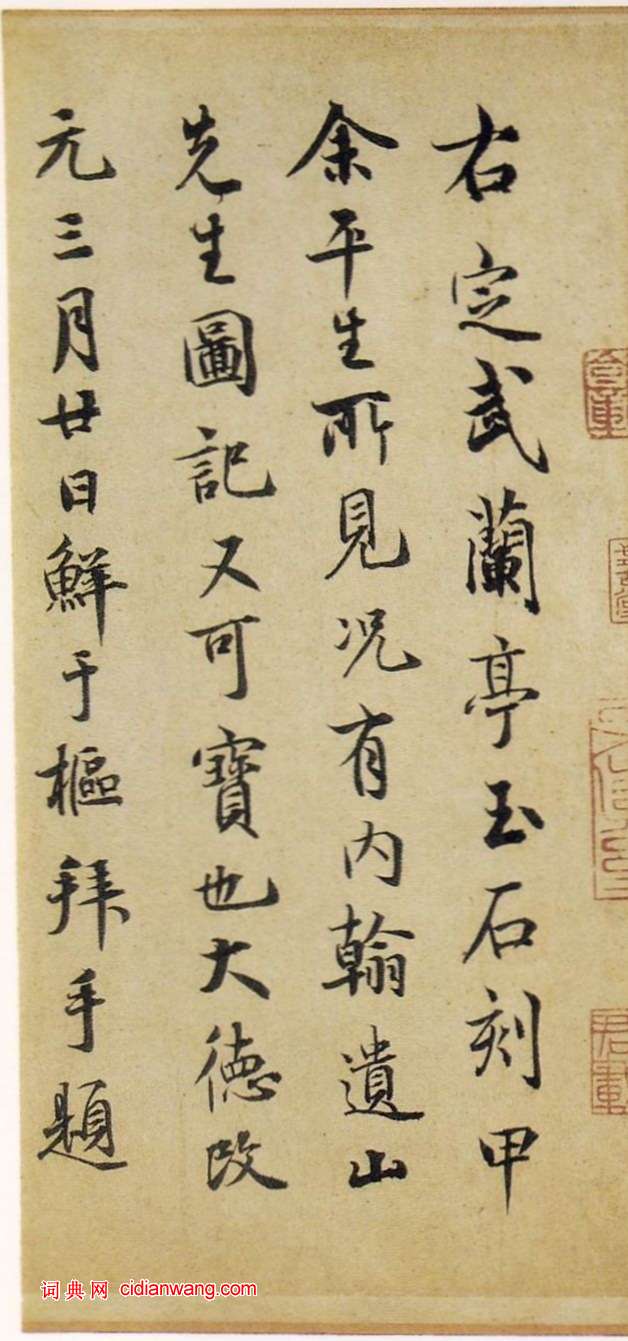 右定武蘭亭玉石刻甲
余平生所見況有内翰遺山
先生圖記又可寶也大德改
元三月廿日鮮于樞拜手題
词典网 cidianwang.com